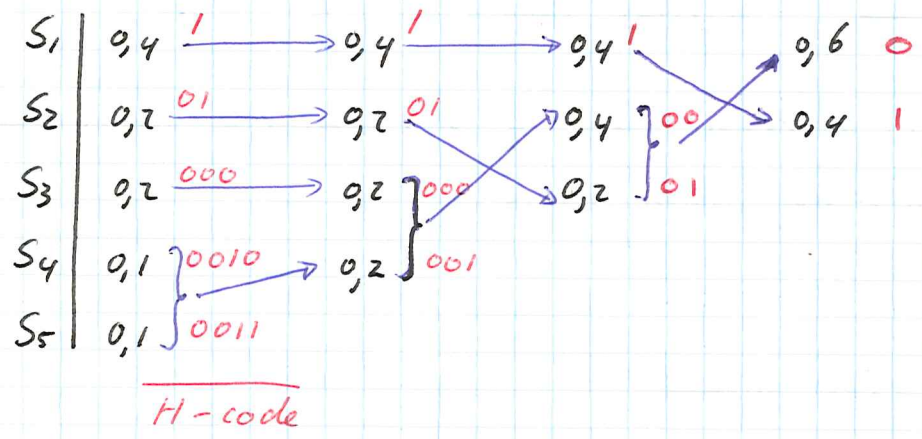 S1 0,4 1 0,4 1 0,4 1 0,6 0
S2 0,2 01 0,2 01 0,4 00 0,4 1
S3 0,2 000 0,2 000 0,2 01
S4 0,1 0010 0,2 001
S5 0,1 0011
H-code